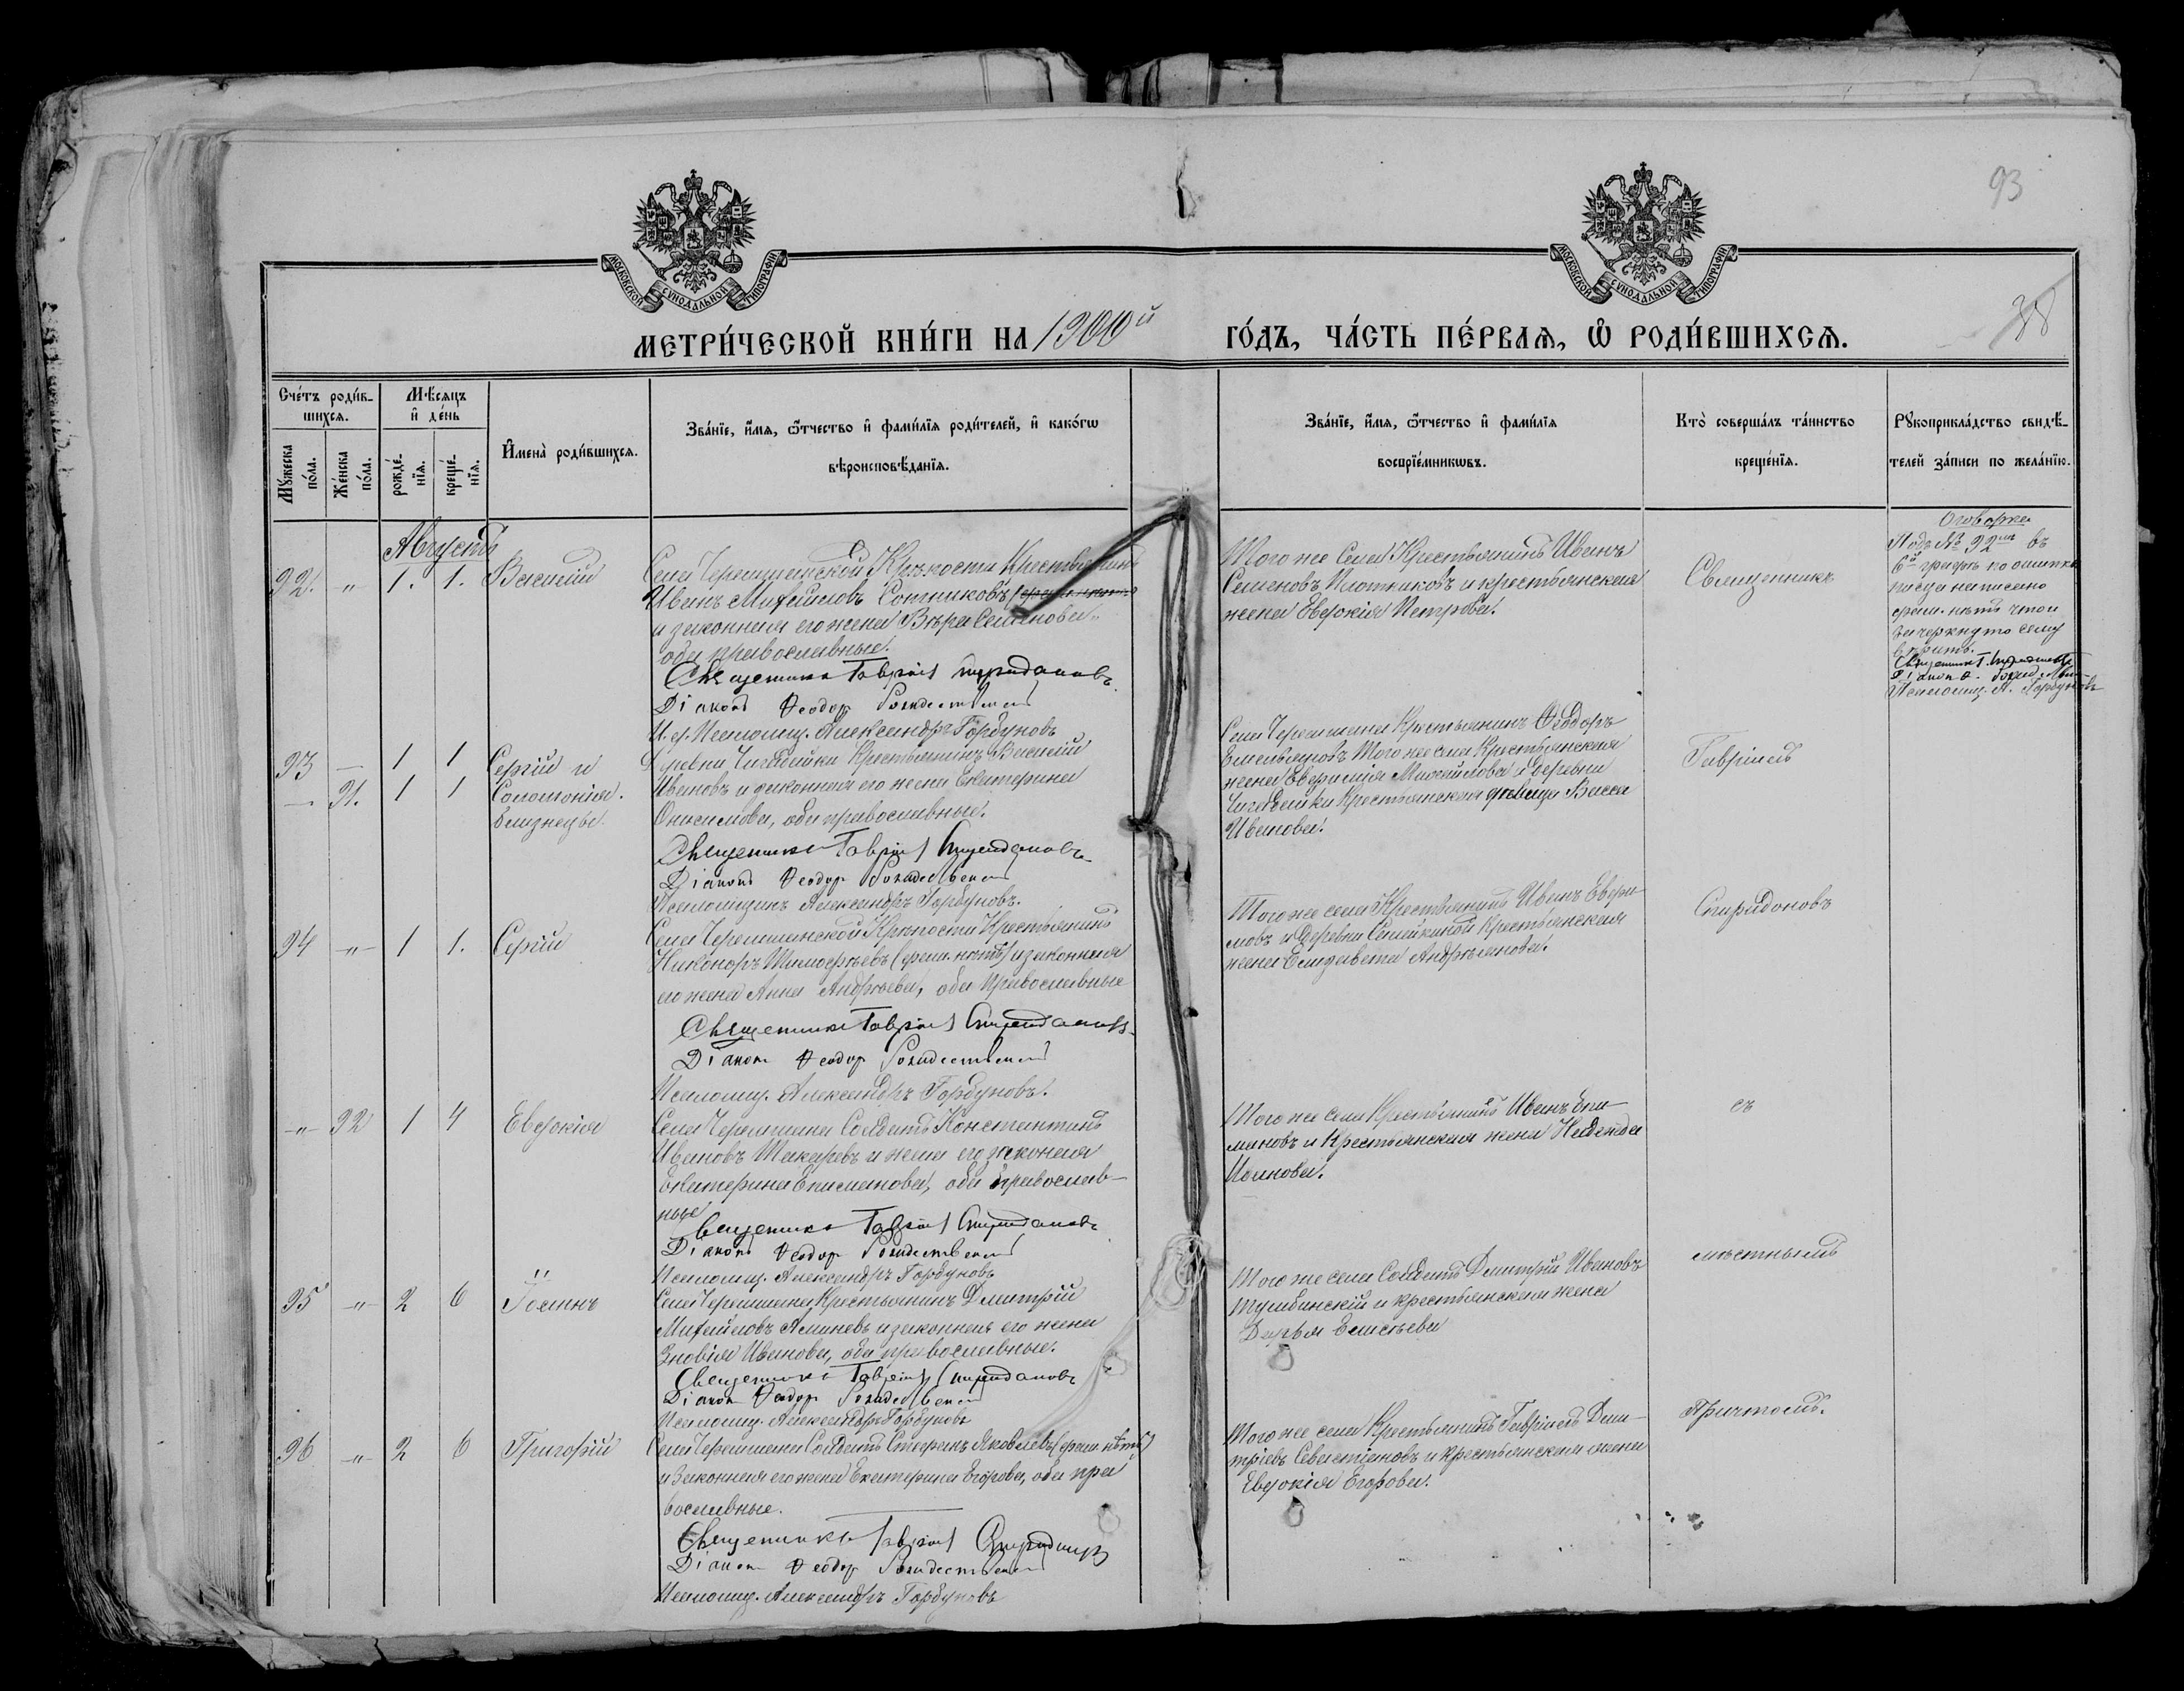 93
МОСКОВСКОЙ СУНОДАЛЬНОЙ ТИПОГРАФІИ
МОСКОВСКОЙ СУНОДАЛЬНОЙ ТИПОГРАФІИ
38
МЕТРИ́ЧЕСКОЙ КНИ́ГИ НА 1900й ГО́ДЪ, ЧА́СТЬ ПЕ́РВАѦ, Ѡ҆ РОДИ́ВШИХСѦ.
Сче́тъ роди́в-
шихсѧ.
Мꙋ́жеска по́ла.
Же́нска по́ла.
Мѣ́сѧцъ
и҆ де́нь
рожде́-
нїѧ.
креще́-
нїѧ.
И҆мена̀ роди́вшихсѧ.
Зва́нїе, и҆́мѧ, ѻ҆́тчество и҆ фами́лїѧ роди́телей, и҆ како́гѡ
вѣроисповѣ́данїѧ.
Зва́нїе, и҆́мѧ, ѻ҆́тчество и҆ фами́лїѧ
воспрїе́мникѡвъ.
Кто̀ соверша́лъ та́инство
креще́нїѧ.
Рꙋкоприкла́дство свидѣ́-
телей за́писи по жела́нїю.
Августъ
92. " 1. 1. Василій
Села Черемшанской Крѣпости Крестьянинъ
Иванъ Михайловъ Сотниковъ
и законная его жена Вѣра Семенова
оба православные.
Священникъ Гавріилъ Спиридоновъ
Діаконъ Ѳеодоръ Рождественскій
И. д. Псаломщ. Александръ Горбуновъ
Того же Села Крестьянинъ Иванъ
Семеновъ Плотниковъ и крестьянская
жена Евдокія Петрова.
Священникъ
Оговорка
Подъ № 92мъ въ
6й графѣ по ошибкѣ
писца написано
фам. нѣтъ что и
зачеркнуто сему
вѣрить.
Священникъ Г. Спиридоновъ
Діакон Ѳ. Рождест
Псаломщ. А. Горбуновъ
93 — 1 1 Сергій и
— 91. 1 1 Соломонія.
близнецы.
Деревни Чигадайки Крестьянинъ Василій
Ивановъ и законная его жена Екатерина
Онисимова, оба православные.
Священникъ Гавріилъ Спиридоновъ
Діаконъ Ѳеодоръ Рождественскій
Псаломщикъ Александръ Горбуновъ.
Села Черемшана Крестьянинъ Ѳеодоръ
Емельяновъ Того же села Крестьянская
жена Евфимія Михайлова и деревни
Чигадайки Крестьянская дѣвица Васса
Иванова.
Гавріилъ
94 " 1 1. Сергій
Села Черемшанской Крѣпости Крестьянинъ
Никоноръ Тимофѣевъ (фам. нѣтъ) и законная
его жена Анна Андреева, оба православные
Священникъ Гавріилъ Спиридоновъ
Діаконъ Ѳеодоръ Рождественскій
Псаломщ. Александръ Горбуновъ.
Того же села Крестьянинъ Иванъ Ефи-
мовъ и Деревни Семейкиной Крестьянская
жена Елизавета Андреянова.
Спиридоновъ
" 92 1 4 Евдокія
Села Черемшана Солдатъ Константинъ
Ивановъ Макаревъ и жена его законная
Екатерина Епиманова, оба православ-
ные
Священникъ Гавріилъ Спиридоновъ
Діаконъ Ѳеодоръ Рождественскій
Псаломщ. Александръ Горбуновъ
Того же села Крестьянинъ Иванъ Епи-
мановъ и Крестьянская жена Надежда
съ
95 " 2 6 Іоаннъ
Села Черемшана Крестьянинъ Дмитрій
Михайловъ Аминевъ и законная его жена
Зиновія Иванова, оба православные.
Священникъ Гавріилъ Спиридоновъ
Діаконъ Ѳеодоръ Рождественскій
Псаломщ. Александръ Горбуновъ
Того же села Солдатъ Дмитрій Ивановъ
Тумбинскій и крестьянская жена
Дарья Елисѣева
мѣстнымъ
96 " 2 6 Григорій
Села Черемшана Солдатъ Стефанъ Яковлевъ (фам. нѣтъ)
и Законная его жена Екатерина Егорова, оба пра
вославные.
Священникъ Гавріилъ Спиридоновъ
Діаконъ Ѳеодоръ Рождественскій
Псаломщ. Александръ Горбуновъ
Того же села Крестьянинъ Гавріилъ Дми-
тріевъ Севастіановъ и крестьянская жена
Евдокія Егорова.
Причтомъ.